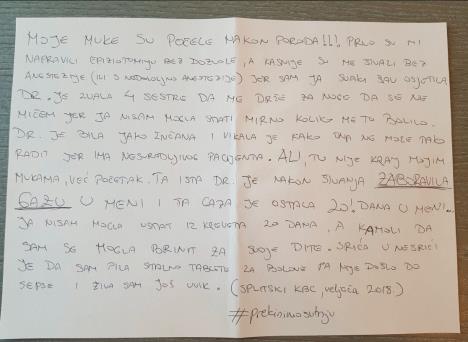 MOJE MUKE SU POČELE NAKON PORODA!!! PRVO SU MI
NAPRAVILI EPIZIOTOMIJU BEZ DOZVOLE, A KASNIJE SU ME ŠIVALI BEZ
ANESTEZIJE (ILI S NEDOVOLJNO ANESTEZIJE) JER SAM JA SVAKI ŠAV OSJETILA
DR. JE ZVALA 4 SESTRE DA ME DRŽE ZA NOGE DA SE NE
MIČEM JER JA NISAM MOGLA STATI MIRNO KOLIKO ME TO BOLILO.
DR. JE BILA JAKO ŽIVČANA I VIKALA JE KAKO ONA NE MOŽE TAKO
RADIT JER IMA NESURADLJIVOG PACIJENTA. ALI, TU NIJE KRAJ MOJIM
MUKAMA, VEĆ POČETAK. TA ISTA DR. JE NAKON ŠIVANJA ZABORAVILA
GAZU U MENI I TA GAZA JE OSTALA 20. DANA U MENI...
JA NISAM MOGLA USTAT IZ KREVETA 20 DANA, A KAMOLI DA
SAM SE MOGLA BRINIT ZA SVOJE DITE. SRIĆA U NESRIĆI
JE DA SAM PILA STALNO TABLETE ZA BOLOVE PA NIJE DOŠLO DO
SEPSE I ŽIVA SAM JOŠ UVIK. (SPLITSKI KBC, veljača 2018.)
#prekinimošutnju